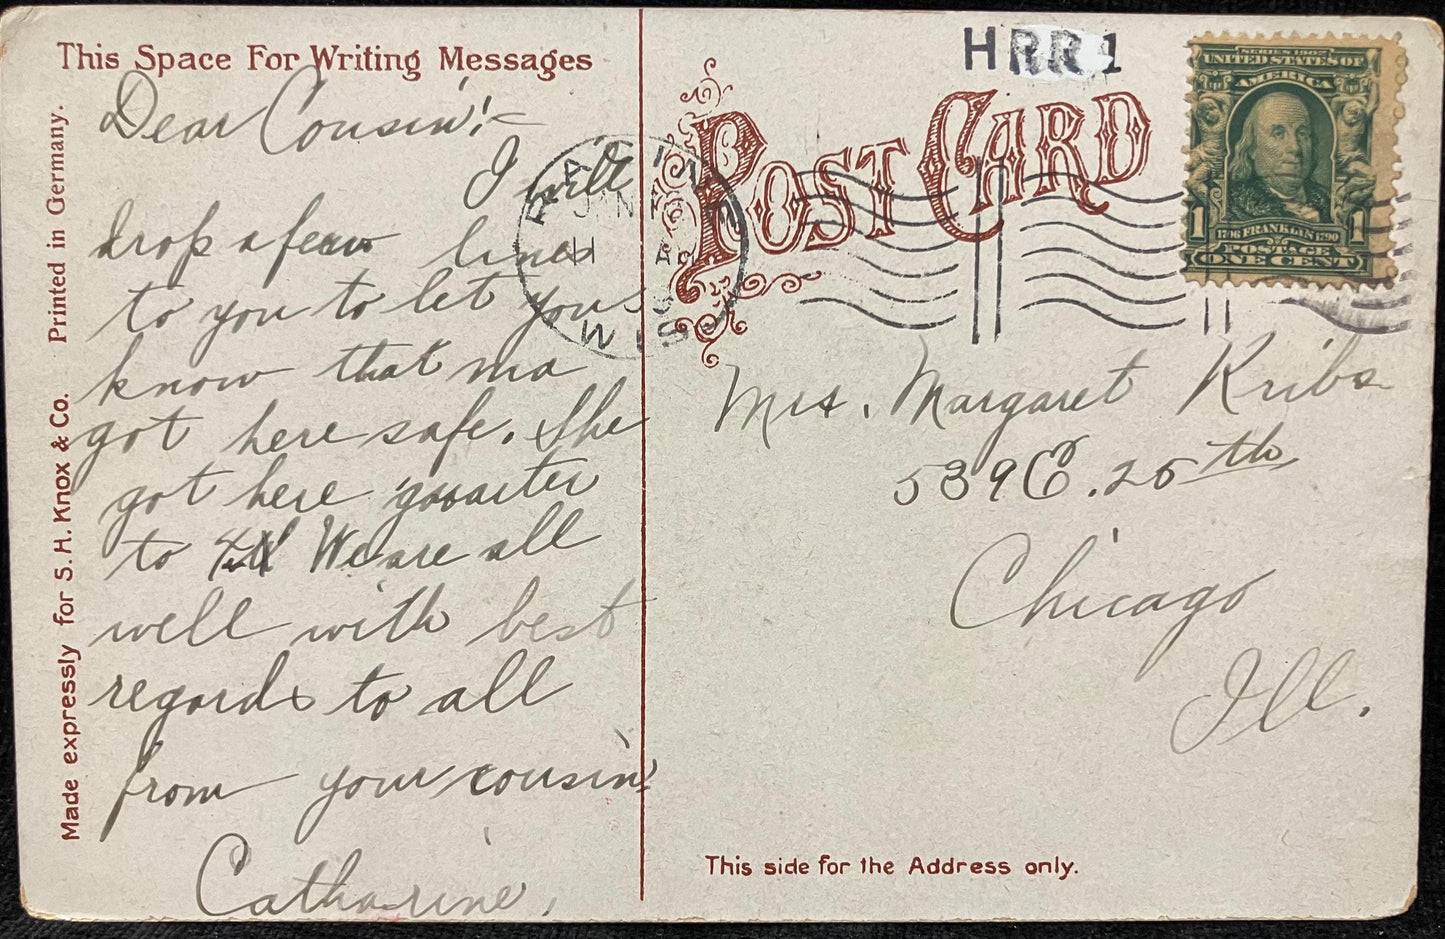 This Space For Writing Messages
Dear Cousin!-
I will
drop a few lines
to you to let you
know that ma
got here safe. She
got here quoarter
to We are all
well with best
regards to all
from your cousin
Catharine,
Made expressly for S. H. Knox & Co. Printed in Germany.
RACINE
WIS
POST CARD
SERIES 1902
UNITED STATES OF
AMERICA
1 1706 FRANKLIN 1790 1
POSTAGE
ONE CENT
Mrs. Margaret Kribs
539 E. 25th
Chicago
Ill.
This side for the Address only.